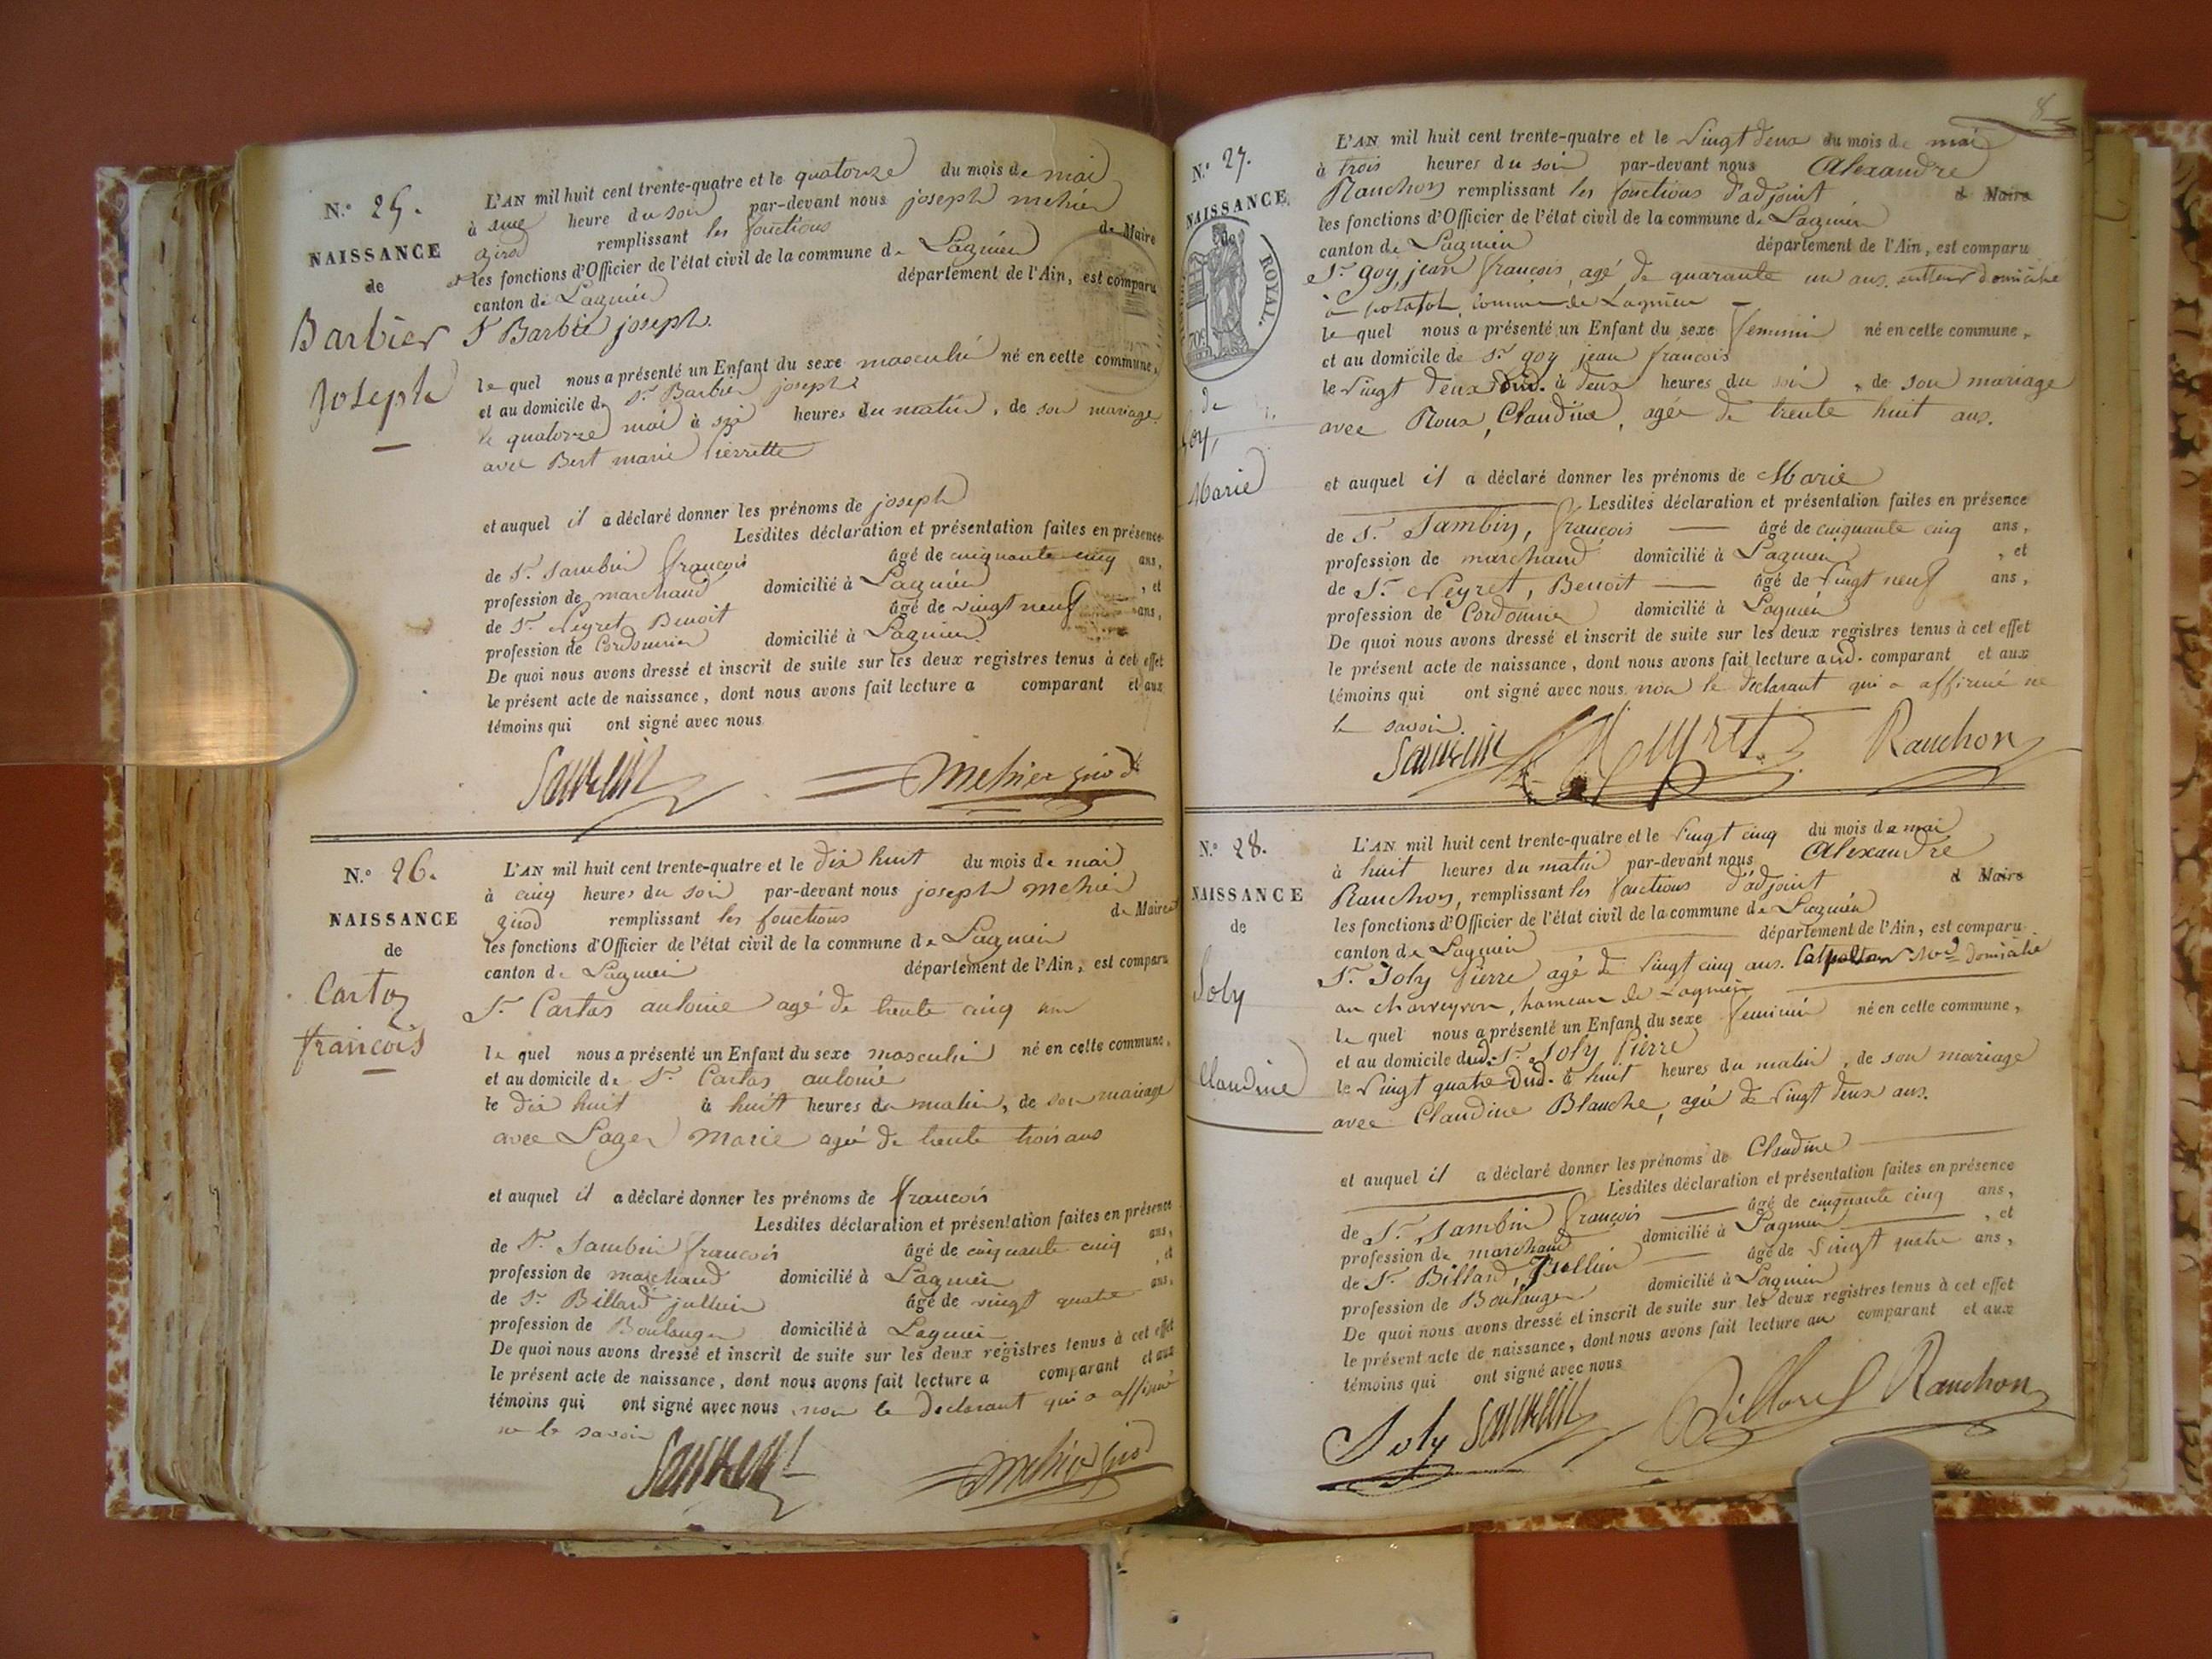 N.° 25.
NAISSANCE
de
Barbier
Joseph
L'AN mil huit cent trente-quatre et le quatorze du mois de mai
à une heure du soir par-devant nous joseph mehier
girod remplissant les fonctions de Maire
et les fonctions d'Officier de l'état civil de la commune de Lagnieu
canton de Lagnieu département de l'Ain, est comparu
Sr Barbier joseph.
le quel nous a présenté un Enfant du sexe masculin né en cette commune,
et au domicile de Sr. Barbier joseph
le quatorze mai à six heures du matin, de son mariage
avec Bert marie pierrette
et auquel il a déclaré donner les prénoms de joseph
Lesdites déclaration et présentation faites en présence
de Sr. Sambin françois âgé de cinquante cinq ans,
profession de marchand domicilié à Lagnieu, et
de Sr. Neyret Benoit âgé de vingt neuf ans,
profession de Cordonnier domicilié à Lagnieu
De quoi nous avons dressé et inscrit de suite sur les deux registres tenus à cet effet
le présent acte de naissance, dont nous avons fait lecture a comparant et aux
témoins qui ont signé avec nous
Sambin Mehier girod
N.° 26.
NAISSANCE
de
Cartaz
francois
L'AN mil huit cent trente-quatre et le dix huit du mois de mai
à cinq heures du soir par-devant nous joseph mehier
girod remplissant les fonctions de Maire
les fonctions d'Officier de l'état civil de la commune de Lagnieu
canton de Lagnieu département de l'Ain, est comparu
Sr. Cartas antoine agé de trente cinq ans
le quel nous a présenté un Enfant du sexe masculin né en cette commune,
et au domicile de Sr. Cartas antoine
le dix huit à huit heures du matin, de son mariage
avec Lager Marie agée de trente trois ans
et auquel il a déclaré donner les prénoms de francois
Lesdites déclaration et présentation faites en présence
de Sr. Sambin francois âgé de cinquante cinq ans,
profession de marchand domicilié à Lagnieu, et
de Sr. Billard jullien âgé de vingt quatre ans,
profession de Boulanger domicilié à Lagnieu
De quoi nous avons dressé et inscrit de suite sur les deux registres tenus à cet effet
le présent acte de naissance, dont nous avons fait lecture a comparant et aux
témoins qui ont signé avec nous non le declarant qui a affirmé
ne le savoir
Sambin Mehier girod
8
N.° 27.
NAISSANCE
ROYAL.
de
Goy,
Marie
L'AN mil huit cent trente-quatre et le vingt deux du mois de mai
à trois heures du soir par-devant nous Alexandre
Rauchon remplissant les fonctions d'adjoint d Maire
les fonctions d'Officier de l'état civil de la commune de Lagnieu
canton de Lagnieu département de l'Ain, est comparu
Sr. goy, jean francois, agé de quarante un ans, domicilié
à commune de Lagnieu
le quel nous a présenté un Enfant du sexe feminin né en cette commune,
et au domicile de Sr. goy jean francois
le vingt deux dud. à deux heures du soir, de son mariage
avec Roux, Claudine, agée de trente huit ans.
et auquel il a déclaré donner les prénoms de Marie
Lesdites déclaration et présentation faites en présence
de Sr. Sambin, françois âgé de cinquante cinq ans,
profession de marchand domicilié à Lagnieu, et
de Sr. Neyret, Benoit âgé de vingt neuf ans,
profession de Cordonnier domicilié à Lagnieu
De quoi nous avons dressé et inscrit de suite sur les deux registres tenus à cet effet
le présent acte de naissance, dont nous avons fait lecture aud. comparant et aux
témoins qui ont signé avec nous non le declarant qui a affirmé ne
le savoir.
Sambin Neyret Rauchon
N.° 28.
NAISSANCE
de
Joly
Claudine
L'AN mil huit cent trente-quatre et le vingt cinq du mois de mai
à huit heures du matin par-devant nous Alexandre
Rauchon, remplissant les fonctions d'adjoint d Maire
les fonctions d'Officier de l'état civil de la commune de Lagnieu
canton de Lagnieu département de l'Ain, est comparu
Sr. Joly Pierre agé de vingt cinq ans. domicilié
au charveyron, hameau de Lagnieu
le quel nous a présenté un Enfant du sexe feminin né en cette commune,
et au domicile dud. Sr. Joly Pierre
le vingt quatre dud. à huit heures du matin, de son mariage
avec Claudine Blanche, agée de vingt deux ans.
et auquel il a déclaré donner les prénoms de Claudine
Lesdites déclaration et présentation faites en présence
de Sr. Sambin françois âgé de cinquante cinq ans,
profession de marchand domicilié à Lagnieu, et
de Sr. Billard, Jullien âgé de vingt quatre ans,
profession de Boulanger domicilié à Lagnieu
De quoi nous avons dressé et inscrit de suite sur les deux registres tenus à cet effet
le présent acte de naissance, dont nous avons fait lecture au comparant et aux
témoins qui ont signé avec nous
Joly Sambin Billard Rauchon